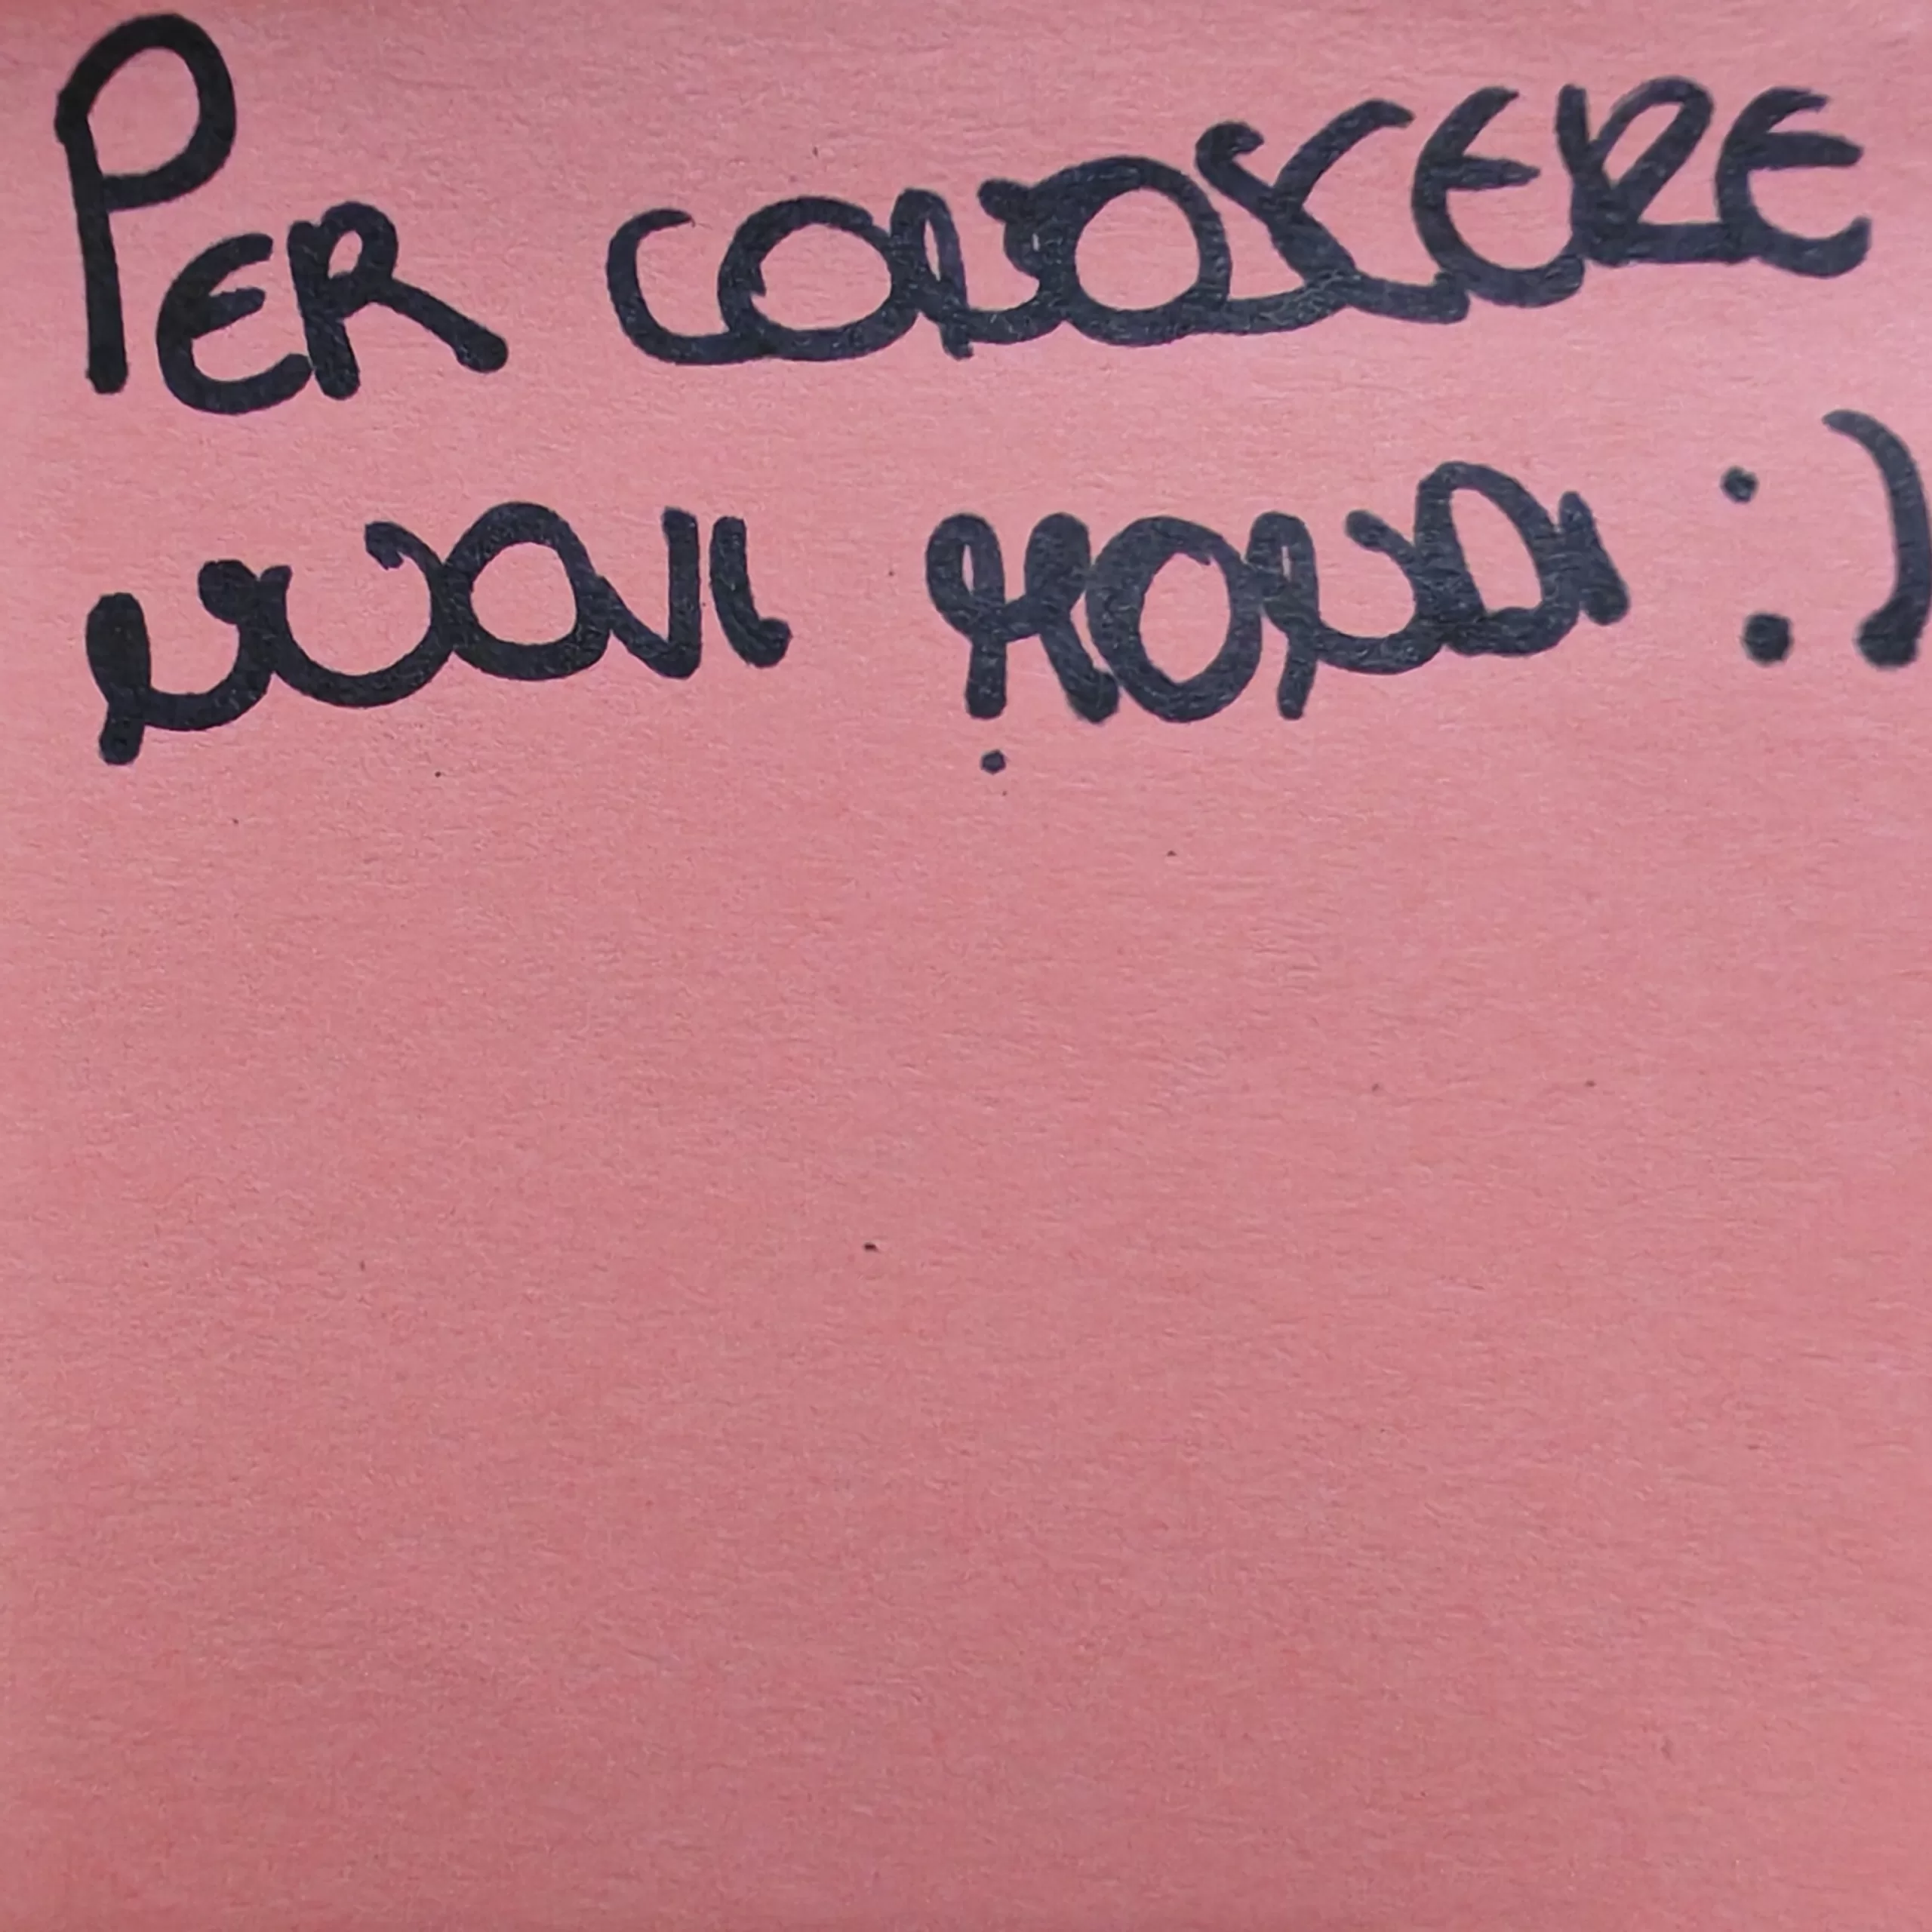 PER CONOSCERE
NUOVI MONDI :)